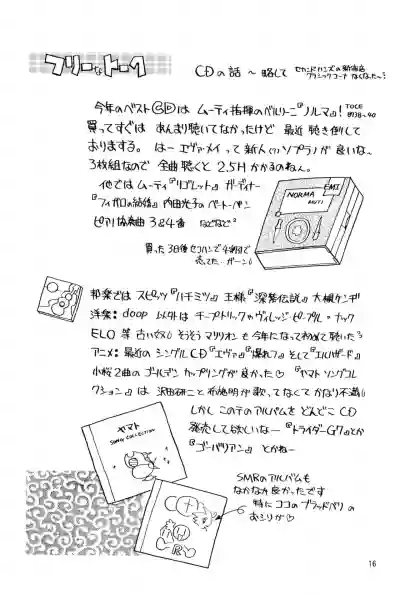 フリーなトーク
CDの話 ~ 略して
セカンドハンズの新宿店
クラシックコーナーなくなった~
今年のベストCDは ムーティ指揮のベルリーニ『ノルマ』!
TOCE
8938~40
買ってすぐは あんまり聴いてなかったけど 最近 聴き倒して
おりまする。 はー エヴァ・メイって新人(?)ソプラノが良いな~
3枚組なので 全曲聴くと 2.5Hかかるのねん。
他では ムーティ『リゴレット』 ガーディナー
『フィガロの結婚』 内田光子のベートーベン
ピアノ協奏曲 3&4番 などなど?
NORMA
EMI
MUTI
買った3日後セコハンで
売ってた…ガーン
邦楽では スピッツ『ハチミツ』 王様『深紫伝説』 大槻ケンヂ
洋楽: doop 以外は チープトリックやヴィレッジ・ピープル・ナック
ELO 等 古い奴! そうそう マリリオンも 今年になって初めて聴いた?
アニメ: 最近の シングルCD『エヴァ』『爆れつ』そして『エルハザード』
小桜2曲の ゴールデン カップリングが良かった♡ 『ヤマト ソングコレ
クション』 は 沢田研二と 布施明が歌ってなくて かなり不満
しかし この手のアルバムを どんどこ CD
発売して欲しいな― 『トライダーG7』とか
『ゴーバリアン』 とかねー
ヤマト
SONG COLLECTION
SMRのアルバムも
なかなか良かったです
特に ココのブラッドベリの
おしりが♡
16